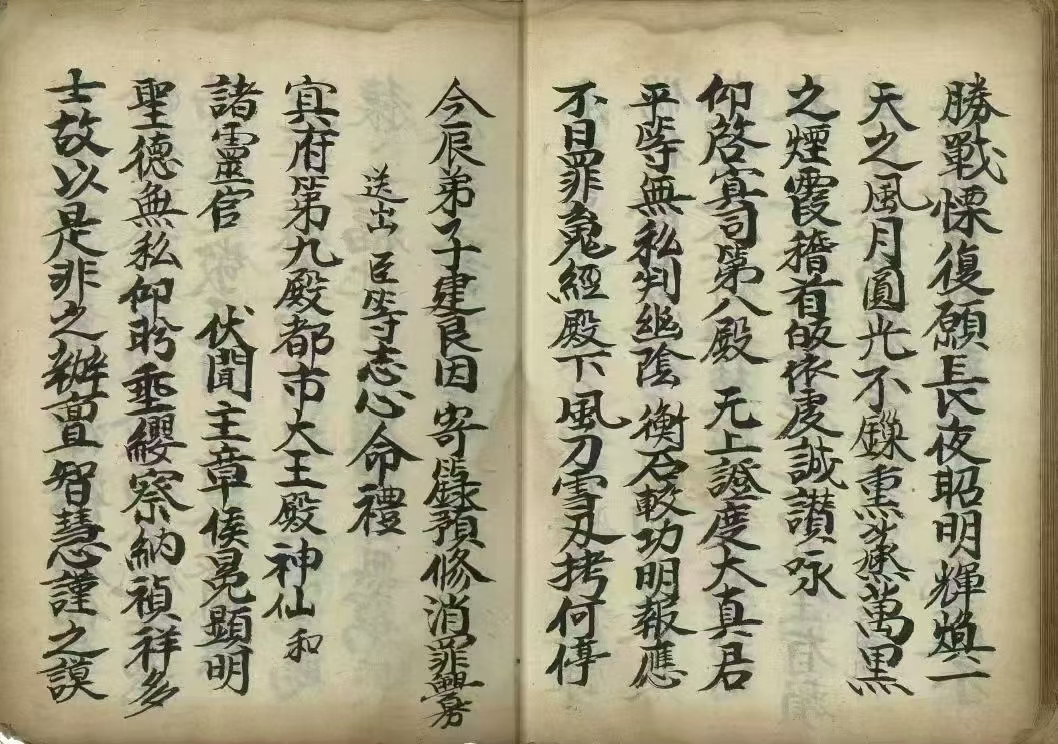 勝戰慄復願長夜昭明輝煥一
天之風月圓光不鏁熏蒸萬黑
之煙霞稽首皈依虔誠讃咏
仰啓寘司第八殿 无上證度大真君
平等無私判幽陰 衡石較功明報應
不日罪䰟經殿下 風刀雪刃拷何停
今辰弟子建良因 寄籙預修消罪
送出 臣等志心命禮
寘府第九殿都市大王殿神仙和
諸靈官 伏聞主章侯冕顯明
聖德無私仰盻垂纓察納禎祥多
士故以是非之辦亶智慧謹之謨